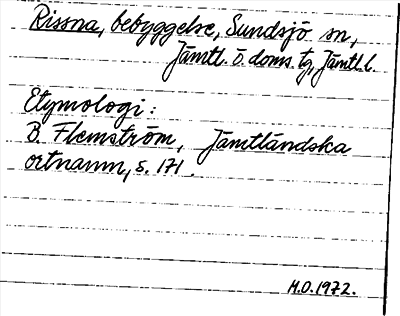 Rissna, bebyggelse, Sundsjö sn,
Jämtl. ö. doms. tg, Jämtl. l.
Etymologi:
B. Flemström, Jämtländska
ortnamn, s. 171.
M.O. 1972.